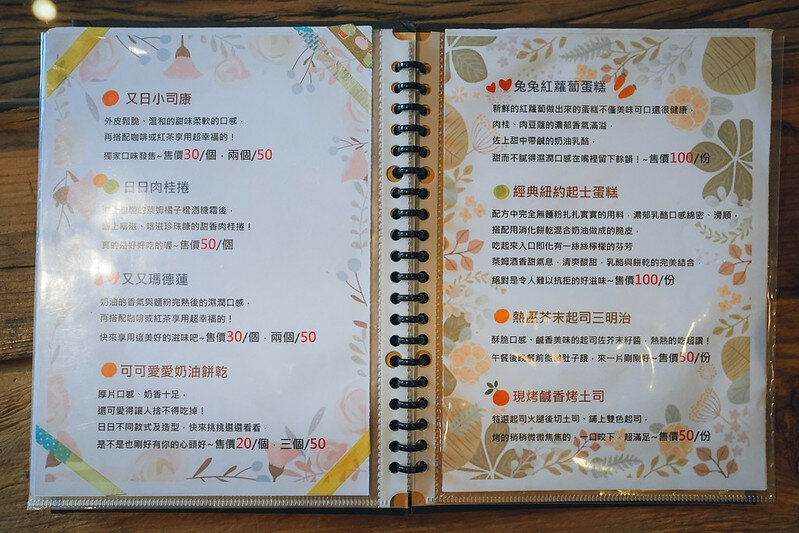 又日小司康
外皮鬆脆、溫和的甜味柔軟的口感，
再搭配咖啡或紅茶享用超幸福的！
獨家口味發售~售價30/個，兩個/50
日日肉桂捲
萊姆橘子橙酒糖霜後，
珍珠糖的甜香肉桂捲！
真的是好好吃的喔~售價50/個
又又瑪德蓮
奶油的香氣與麵粉完熟後的濕潤口感，
再搭配咖啡或紅茶享用超幸福的！
快來享用這美好的滋味吧~售價30/個，兩個/50
可可愛愛奶油餅乾
厚片口感、奶香十足，
還可愛得讓人捨不得吃掉！
日日不同款式及造型，快來挑挑選選看看，
是不是也剛好有你的心頭好~售價20/個，三個/50
兔兔紅蘿蔔蛋糕
新鮮的紅蘿蔔做出來的蛋糕不僅美味可口還很健康，
肉桂、肉豆蔻的濃郁香氣滿溢，
佐上甜中帶鹹的奶油乳酪，
甜而不膩得濕潤口感在嘴裡留下餘韻！~售價100/份
經典紐約起士蛋糕
配方中完全無麵粉扎扎實實的用料，濃郁乳酪口感綿密、滑順，
搭配用消化餅乾混合奶油做成的脆皮，
吃起來入口即化有一絲絲檸檬的芬芳
萊姆酒香甜氣息，清爽酸甜，乳酪與餅乾的完美結合，
絕對是令人難以抗拒的好滋味~售價100/份
熱壓芥末起司三明治
酥脆口感、鹹香美味的起司佐芥末籽醬，熱熱的吃超讚！
午餐後晚餐前微微肚子餓，來一片剛剛好~售價50/份
現烤鹹香烤土司
特選起司火腿後切土司、鋪上雙色起司，
烤的稍稍微微焦焦的，一口咬下，超滿足~售價50/份